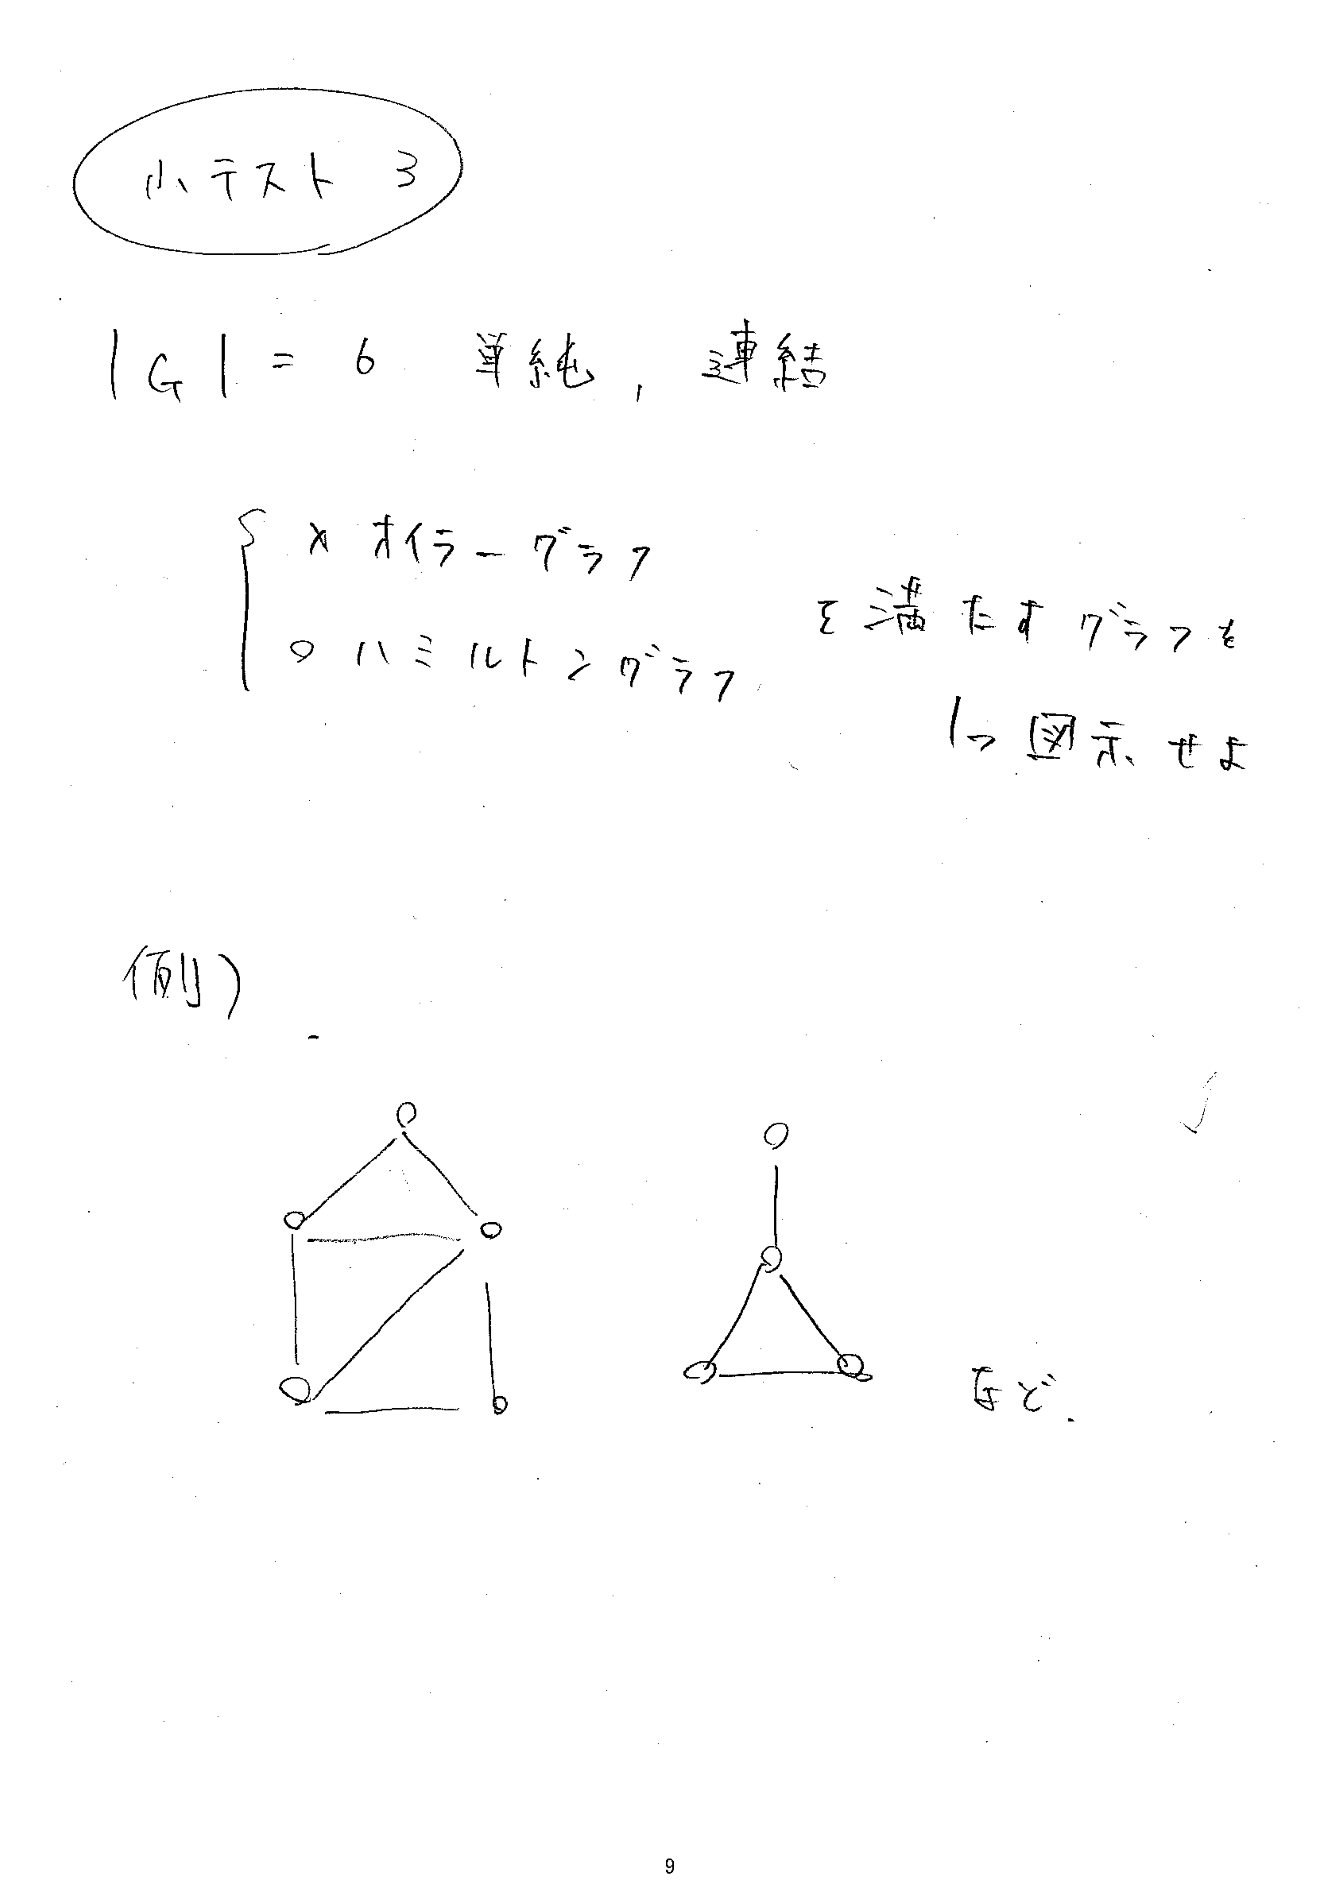 小テスト 3
|G| = 6 単純, 連結
× オイラーグラフ
○ ハミルトングラフ
を満たすグラフを
1つ図示せよ
例)
など.
9